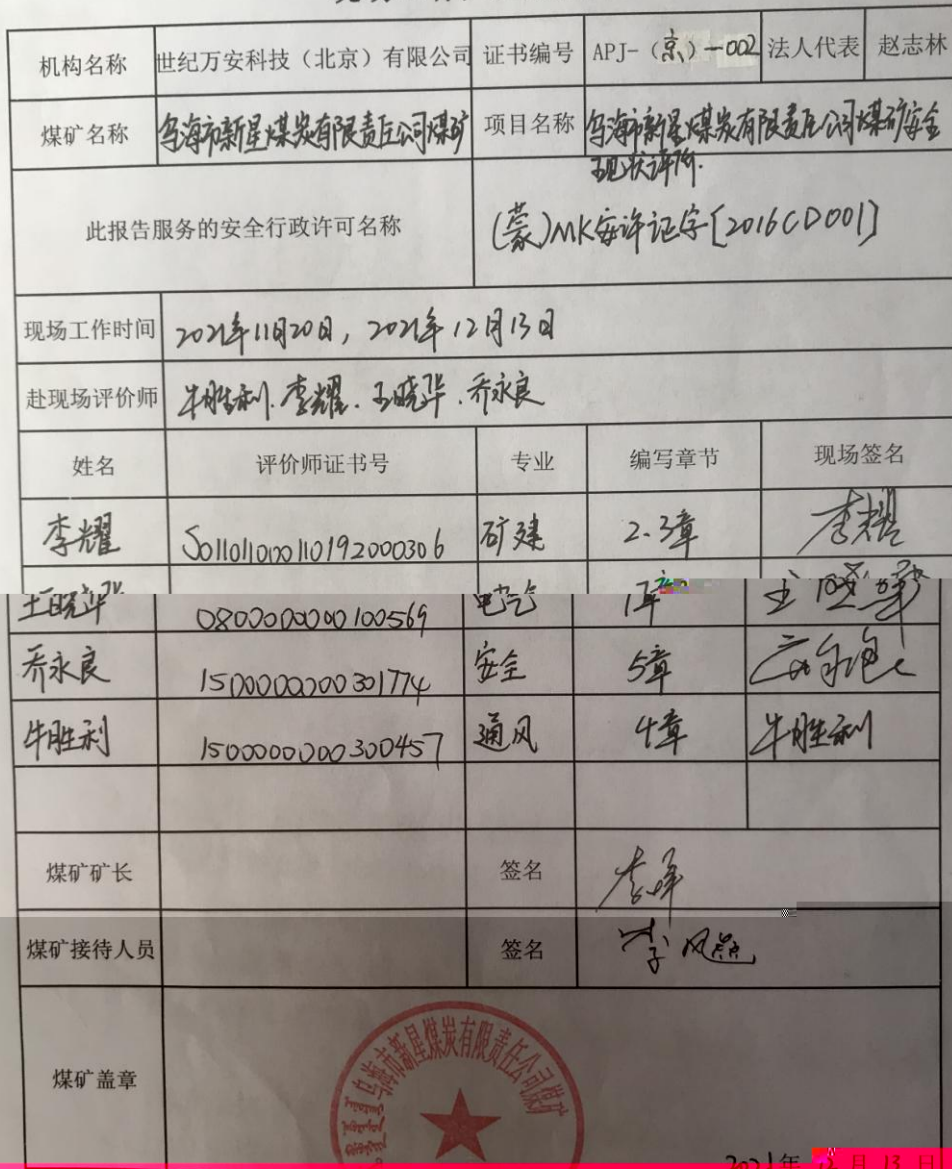 机构名称 世纪万安科技（北京）有限公司 证书编号 APJ-（京）-002 法人代表 赵志林
煤矿名称 乌海市新星煤炭有限责任公司煤矿 项目名称 乌海市新星煤炭有限责任公司煤矿安全
现状评价.
此报告服务的安全行政许可名称 (蒙)MK安许证字[2016CD001]
现场工作时间 2021年11月20日，2021年12月13日
赴现场评价师 牛胜利.李耀.王晓华.乔永良
姓名 评价师证书号 专业 编写章节 现场签名
李耀 S011011000110192000306 矿建 2.3章 李耀
王晓华 0800000000100569 电气 1章 王晓华
乔永良 1500000000301774 安全 5章
牛胜利 1500000000300457 通风 4章 牛胜利
煤矿矿长 签名
煤矿接待人员 签名
煤矿盖章
乌海市新星煤炭有限责任公司煤矿
2021年 月 13 日